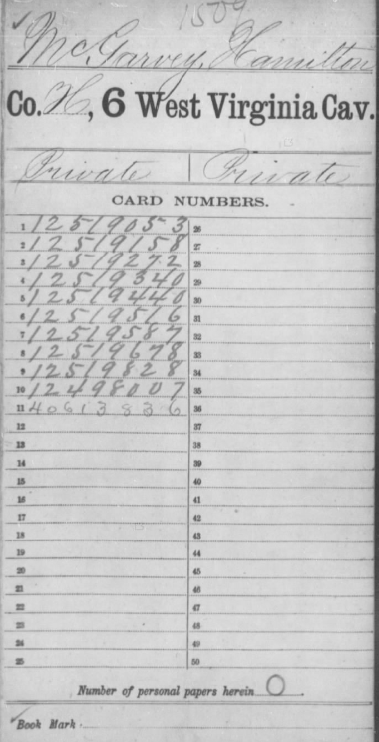 1509
McGarvey, Hamilton
Co. H, 6 West Virginia Cav.
Private | Private
CARD NUMBERS.
1 12519053 26
2 12519158 27
3 12519272 28
4 12519340 29
5 12519440 30
6 12519516 31
7 12519587 32
8 12519678 33
9 12519828 34
10 12498007 35
11 40613836 36
12 37
13 38
14 39
15 40
16 41
17 42
18 43
19 44
20 45
21 46
22 47
23 48
24 49
25 50
Number of personal papers herein 0.
Book Mark.